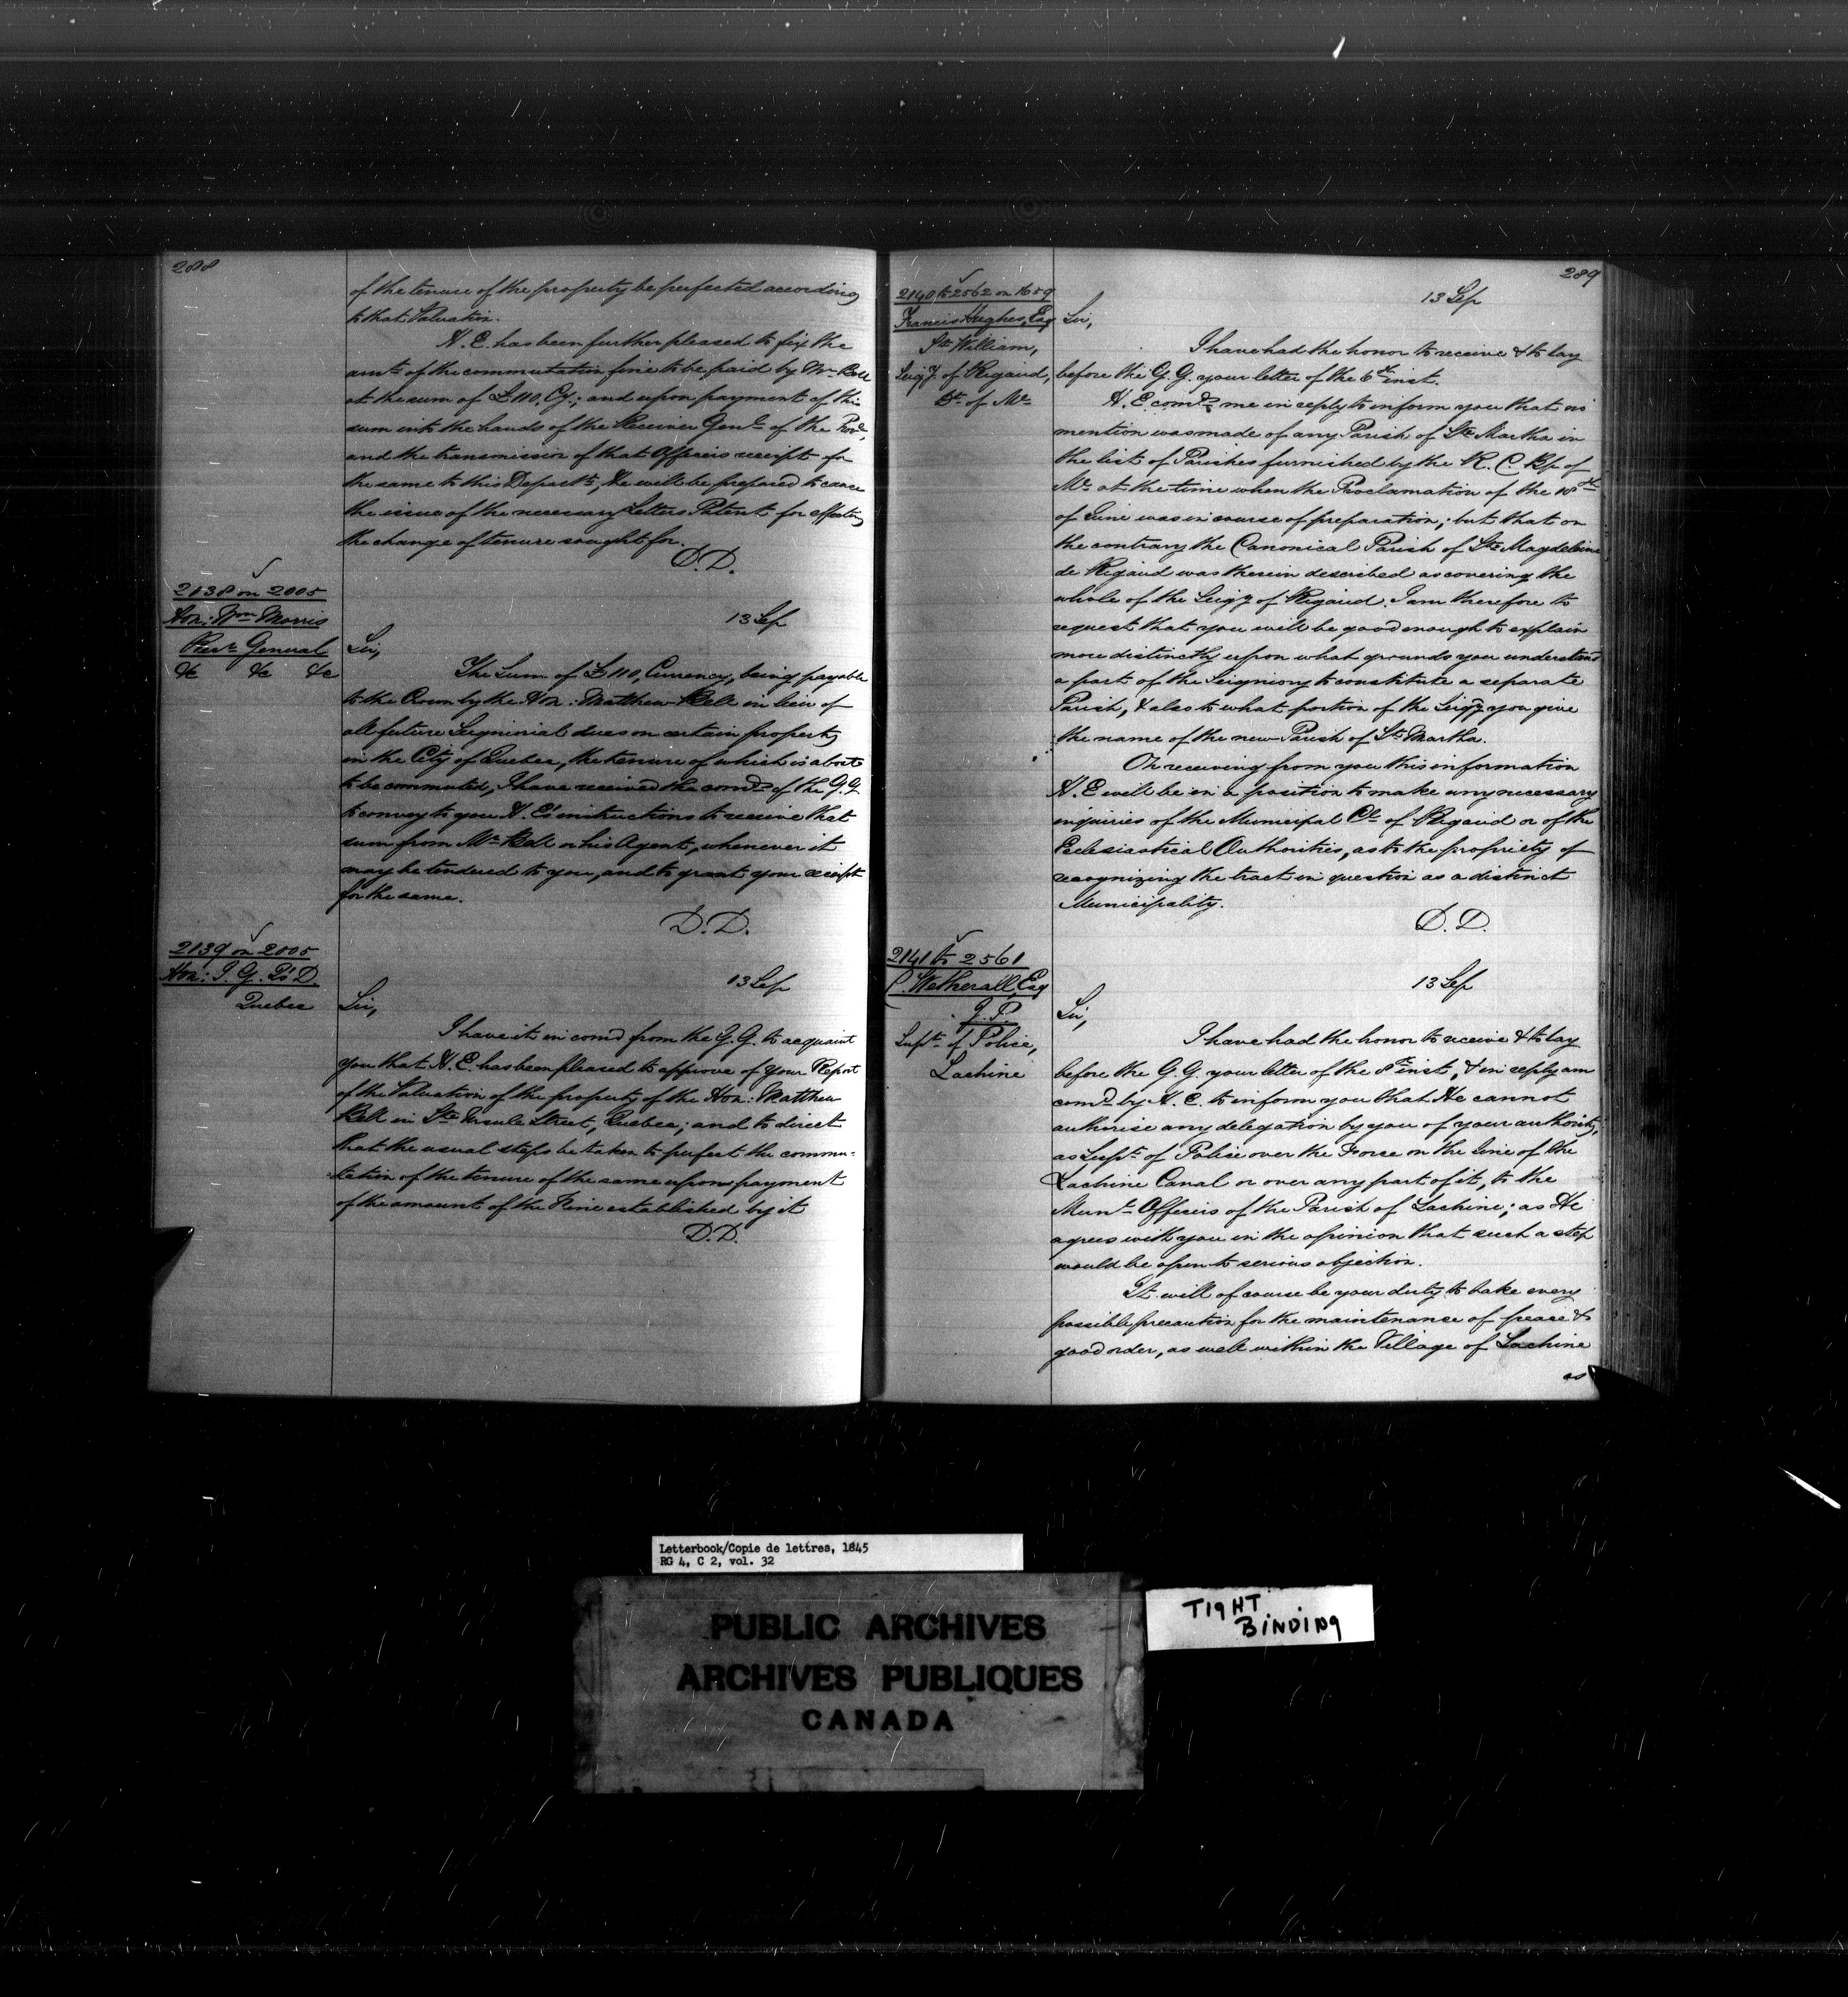 288
of the tenure of the property be perfected according
to that Valuation.
H. E. has been further pleased to fix the
amt. of the commutation fine to be paid by Mr. Bell
at the sum of £110, Cy.; and upon payment of this
sum into the hands of the Receiver Genl. of the Prov.,
and the transmission of that Officers receipt for
the same to this Departt., He will be prepared to cause
the issue of the necessary Letters Patent for effecting
the change of tenure sought for.
D.D.
2138 on 2005
Hon: Wm. Morris
Recr. General
&c &c &c
13 Sep
Sir,
The Sum of £110, Currency, being payable
to the Crown by the Hon: Matthew Bell in lieu of
all future Seignorial dues on certain property
in the City of Quebec, the tenure of which is about
to be commuted, I have received the comds. of the G.G.
to convey to you H. E's instructions to receive that
sum from Mr. Bell or his Agent, whenever it
may be tendered to you, and to grant your receipt
for the same.
D.D.
2139 on 2005
Hon: I. G. Q's D.
Quebec
13 Sep
Sir,
I have it in comd. from the G.G. to acquaint
you that H. E. has been pleased to approve of your Report
of the Valuation of the property of the Hon: Matthew
Bell in Ste Ursule Street, Quebec; and to direct
that the usual steps be taken to perfect the commu-
tation of the tenure of the same upon payment
of the amount of the Fine established by it
D.D.
289
2140 to 2562 on 1659
Francis Hughes, Esq
St William,
Seigy. of Rigaud,
Dt. of Ml.
13 Sep
Sir,
I have had the honor to receive & to lay
before the G.G. your letter of the 6th inst.
H. E. comds. me in reply to inform you that no
mention was made of any Parish of Ste Martha in
the list of Parishes furnished by the R. C. Bp. of
Ml. at the time when the Proclamation of the 18th
of June was in course of preparation; but that on
the contrary the Canonical Parish of Ste Magdeleine
de Rigaud was therein described as covering the
whole of the Seigy of Rigaud. I am therefore to
request that you will be good enough to explain
more distinctly upon what grounds you understand
a part of the Seigniory to constitute a separate
Parish, & also to what portion of the Seigy you give
the name of the new Parish of St. Martha.
On receiving from you this information
H. E will be in a position to make any necessary
inquiries of the Municipal Cl. of Rigaud or of the
Ecclesiastical Authorities, as to the propriety of
recognizing the tract in question as a distinct
Municipality.
D.D.
2141 to 2561
C. Wetherall, Esq
J.P.
Supt. of Police,
Lachine
13 Sep
Sir,
I have had the honor to receive & to lay
before the G.G. your letter of the 8th inst, & in reply am
comd. by H. E. to inform you that He cannot
authorise any delegation by you of your authority,
as Supt. of Police over the Force on the Line of the
Lachine Canal or over any part of it, to the
Munl. Officers of the Parish of Lachine; as He
agrees with you in the opinion that such a step
would be open to serious objection.
It will of course be your duty to take every
possible precaution for the maintenance of peace &
good order, as well within the Village of Lachine
as
Letterbook/Copie de lettres, 1845
RG 4, C 2, vol. 32
PUBLIC ARCHIVES
ARCHIVES PUBLIQUES
CANADA
TIGHT
BINDING